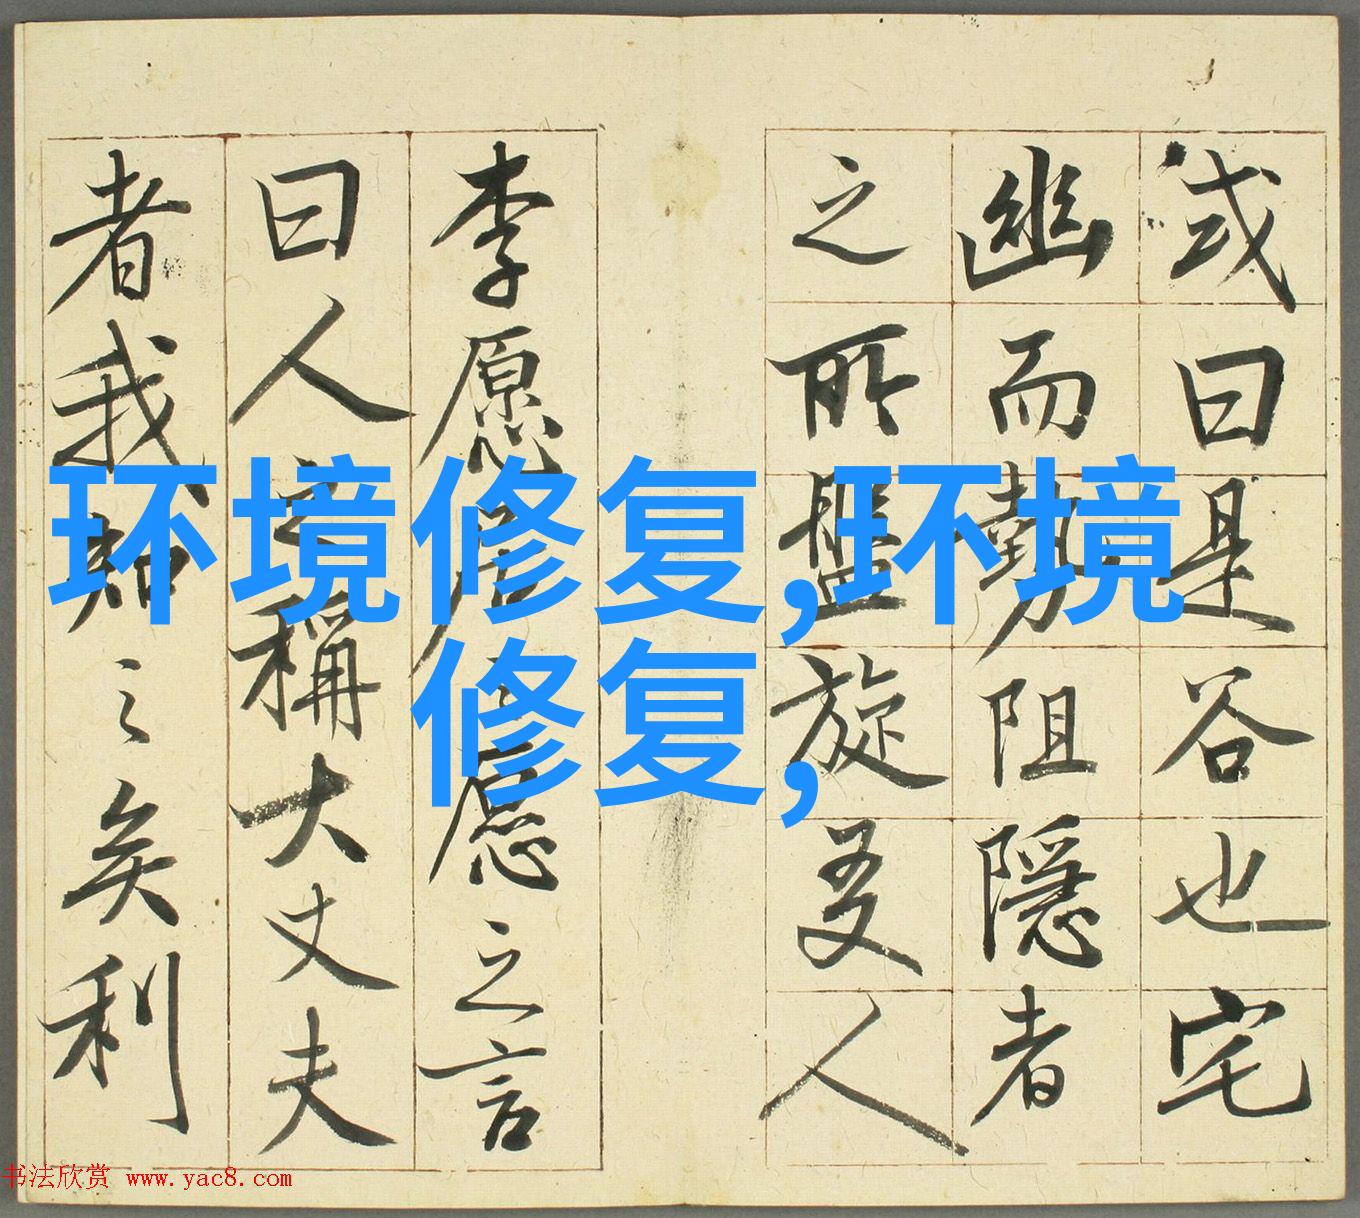 或曰是谷也宅
幽而勢阻隱者
之所盤旋友人
李愿居之愿之言
曰人之稱大丈夫
者我知之矣利
环境修复,环境
修复,
书法欣赏 www.yac8.com